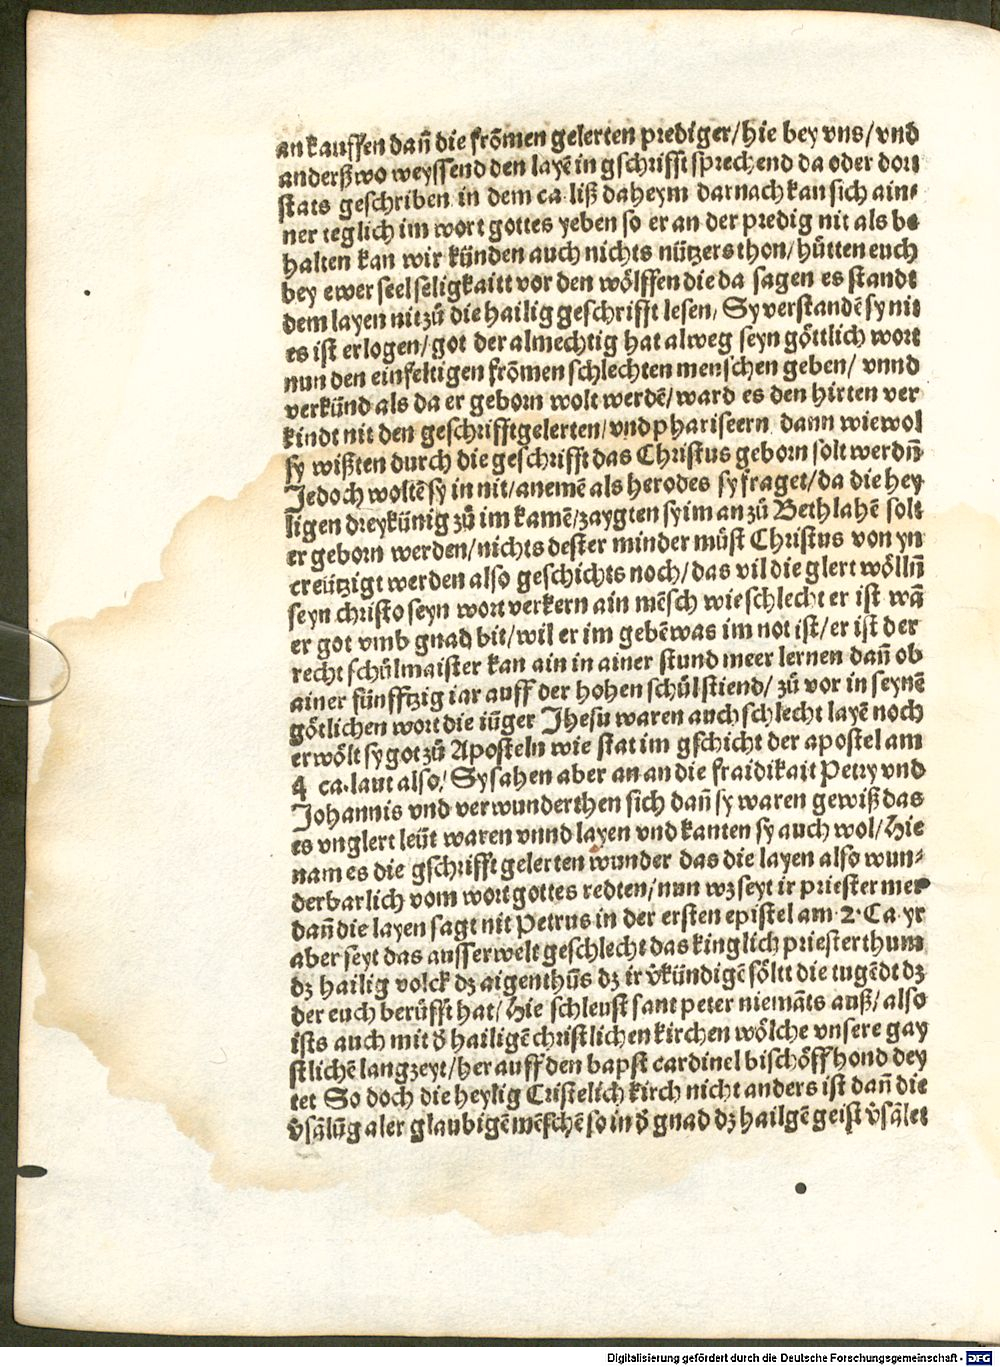 an kauffen dañ die frõmen gelerten prediger/hie bey vns/vnd
anderßwo weyssend den layẽ in gschrifft sprechend da oder dort
stats geschriben in dem ca liß daheym darnach kan sich ain⸗
ner teglich im wort gottes yeben so er an der predig nit als be
halten kan wir künden auch nichts nützers thon/hütten euch
bey ewer seel seligkaitt vor den wölffen die da sagen es standt
dem layen nit zů die hailig geschrifft lesen/ Sy verstandẽ sy nit
es ist erlogen/got der almechtig hat alweg seyn göttlich wort
nun den einfeltigen frõmen schlechten menschen geben/ vnnd
verkünd als da er geborn wolt werdẽ/ward es den hirten ver
kindt nit den geschrifftgelerten/vnd phariseern dann wiewol
sy wißten durch die geschrifft das Christus geborn solt werdñ
Jedoch woltẽ sy in nit/anemẽ als herodes sy fraget/da die hey
ligen dreykünig zů im kamẽ/zaygten sy im an zů Bethlahẽ solt
er geborn werden/nichts dester minder můst Christus von yn
creützigt werden also geschichts noch/das vil die glert wöllñ
seyn christo seyn wort verkern ain mẽsch wie schlecht er ist wã
er got vmb gnad bit/wil er im gebẽ was im not ist/er ist der
recht schůlmaister kan ain in ainer stund meer lernen dañ ob
ainer fünfftzig iar auff der hohen schůl stiend/ zů vor in seynẽ
götlichen wort die iũger Jhesu waren auch schlecht layẽ noch
erwölt sy got zů Aposteln wie stat im gschicht der apostel am
4 ca. laut also/ Sy sahen aber an an die fraidikait Petry vnd
Johannis vnd verwunderthen sich dañ sy waren gewiß das
es vnglert leüt waren vnnd layen vnd kanten sy auch wol/Hie
nam es die gschrifft gelerten wunder das die layen also wun⸗
derbarlich vom wort gottes redten/nun wz seyt ir priester mer
dañ die layen sagt nit Petrus in der ersten epistel am 2. Ca yr
aber seyt das ausserwelt geschlecht das kinglich priesterthum
dz hailig volck dz aigenthũs dz ir v̾kündigẽ söltt die tugẽdt dz
der euch berüfft hat/Hie schleust sant peter niemãts auß/also
ists auch mit d̾ hailigẽ christlichen kirchen wölche vnsere gay
stlichẽ langzeyt/her auff den bapst cardinel bischöff hond dey
tet So doch die heylig Cristelich kirch nicht anders ist dañ die
v̾sãlũg aler glaubigẽ mẽschẽ so in d̾ gnad dz hailgẽ geist v̾sãlet
Digitalisierung gefördert durch die Deutsche Forschungsgemeinschaft - DFG